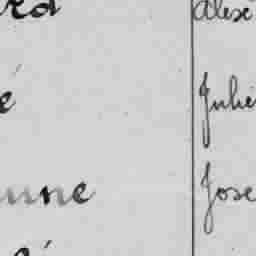 rd Alex
é Julie
unne Jose
é